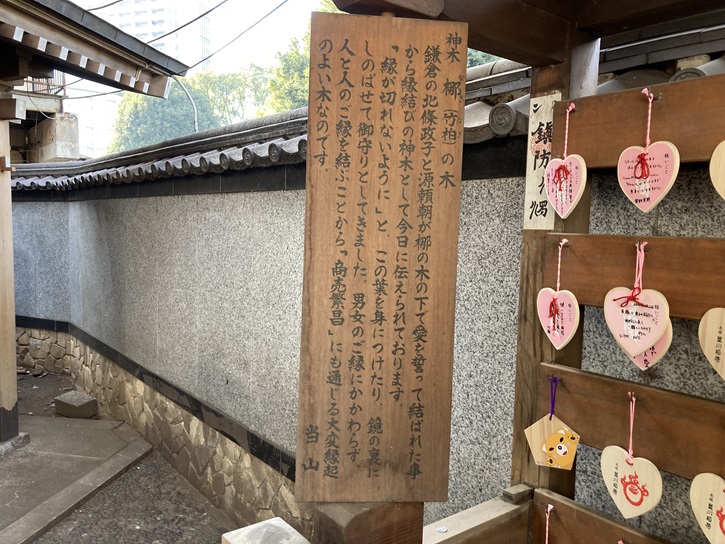 神木 梛(竹柏)の木
鎌倉の北條政子と源頼朝が梛の木の下で愛を誓って結ばれた事
から縁結びの神木として今日に伝えられております。
「縁が切れないように」と、この葉を身につけたり、鏡の裏に
しのばせて御守りとしてきました。男女のご縁にかかわらず
人と人のご縁を結ぶことから「商売繁昌」にも通じる大変縁起
のよい木なのです。
当山
鎮防火燭